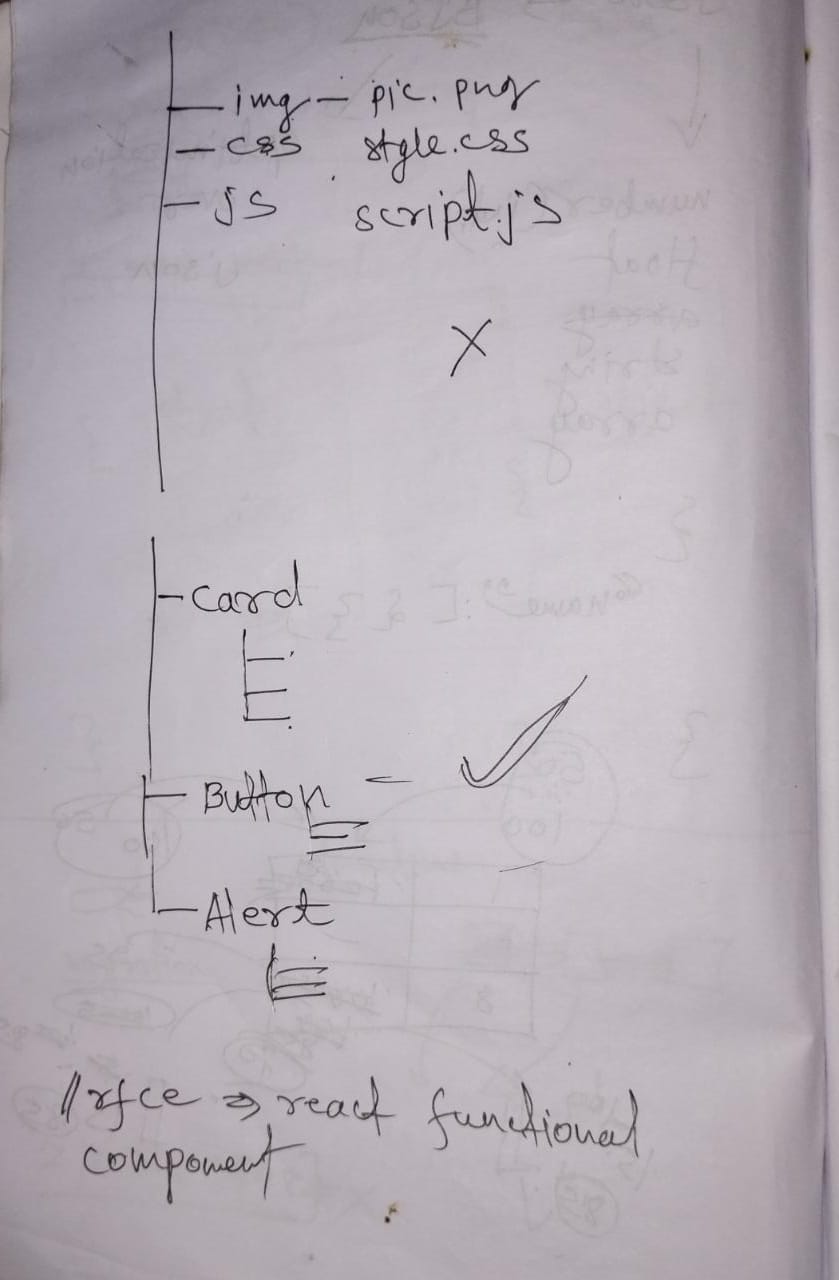 img - pic.png
css style.css
js script.js
X
Card
Button -
Alert
//rfce => react functional
component